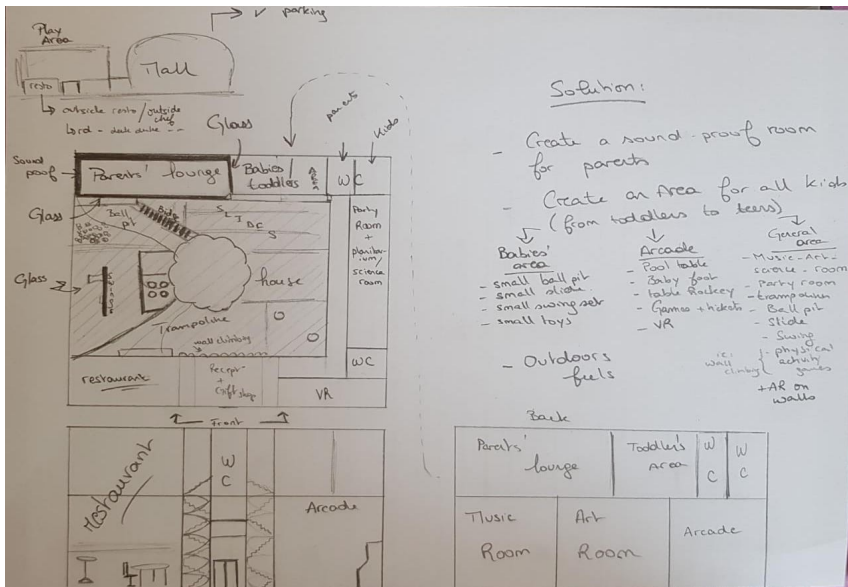 Play
Area
✓ parking
Mall
resto
↳ outside resto/outside
chef
Glass
parents
Kids
Sound
proof
Parents' lounge
Babies/
toddlers
WC
Glass
Ball
pit
SLIDES
Party
Room
+
science
room
Glass
house
Trampoline
wall climbing
restaurant
Recept
+
Giftshop
WC
VR
Front
Restaurant
WC
Arcade
Solution:
- Create a sound-proof room
for parents
- Create an Area for all kids
(from toddlers to teens)
Babies'
area
- small ball pit
- small slide
- small swing set
- small toys
Arcade
- Pool table
- Baby foot
- table Hockey
- Games + tickets
- VR
General
area
- Music-Art-
science-room
- Party room
- trampoline
- Ball pit
- Slide
- Swing
- physical
activity
games
i.e:
wall
climbing
+AR on
walls
- Outdoors
feels
Back
Parents'
lounge
Toddler's
Area
WC
WC
Music
Room
Art
Room
Arcade